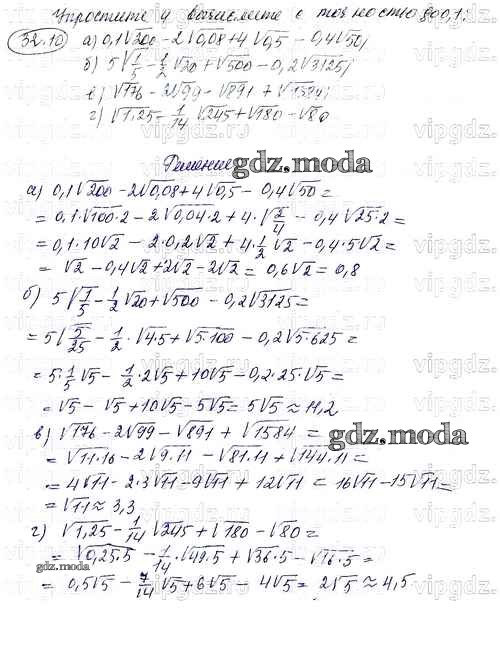 Упростите и вычислите с точностью до 0,1:
32.10 а) 0,1√200 - 2√0,08 + 4√0,5 - 0,4√50;
б) 5√1/5 - 1/2√20 + √500 - 0,2√3125;
в) √176 - 2√99 - √891 + √1584;
г) √1,25 - 1/14 √245 + √180 - √80
Решение
gdz.moda
а) 0,1√200 - 2√0,08 + 4√0,5 - 0,4√50 =
= 0,1·√100·2 - 2√0,04·2 + 4·√2/4 - 0,4√25·2 =
= 0,1·10√2 - 2·0,2√2 + 4·1/2√2 - 0,4·5√2 =
= √2 - 0,4√2 + 2√2 - 2√2 = 0,6√2 = 0,8
б) 5√1/5 - 1/2√20 + √500 - 0,2√3125 =
= 5√5/25 - 1/2·√4·5 + √5·100 - 0,2√5·625 =
= 5·1/5√5 - 1/2·2√5 + 10√5 - 0,2·25·√5 =
= √5 - √5 + 10√5 - 5√5 = 5√5 ≈ 11,2
в) √176 - 2√99 - √891 + √1584 =
gdz.moda
= √11·16 - 2√9·11 - √81·11 + √144·11 =
= 4√11 - 2·3√11 - 9√11 + 12√11 = 16√11 - 15√11 =
= √11 ≈ 3,3
г) √1,25 - 1/14√245 + √180 - √80 =
= √0,25·5 - 1/14·√49·5 + √36·5 - √16·5 =
gdz.moda
= 0,5√5 - 7/14√5 + 6√5 - 4√5 = 2√5 ≈ 4,5